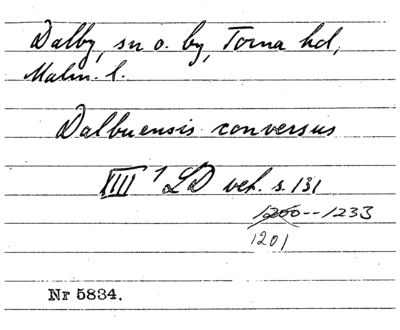 Dalby, sn o. by, Torna hd,
Malm. l.
Dalbuensis conversus
XIII 1 LD vek. s. 131
1200--1233
1201
Nr 5834.